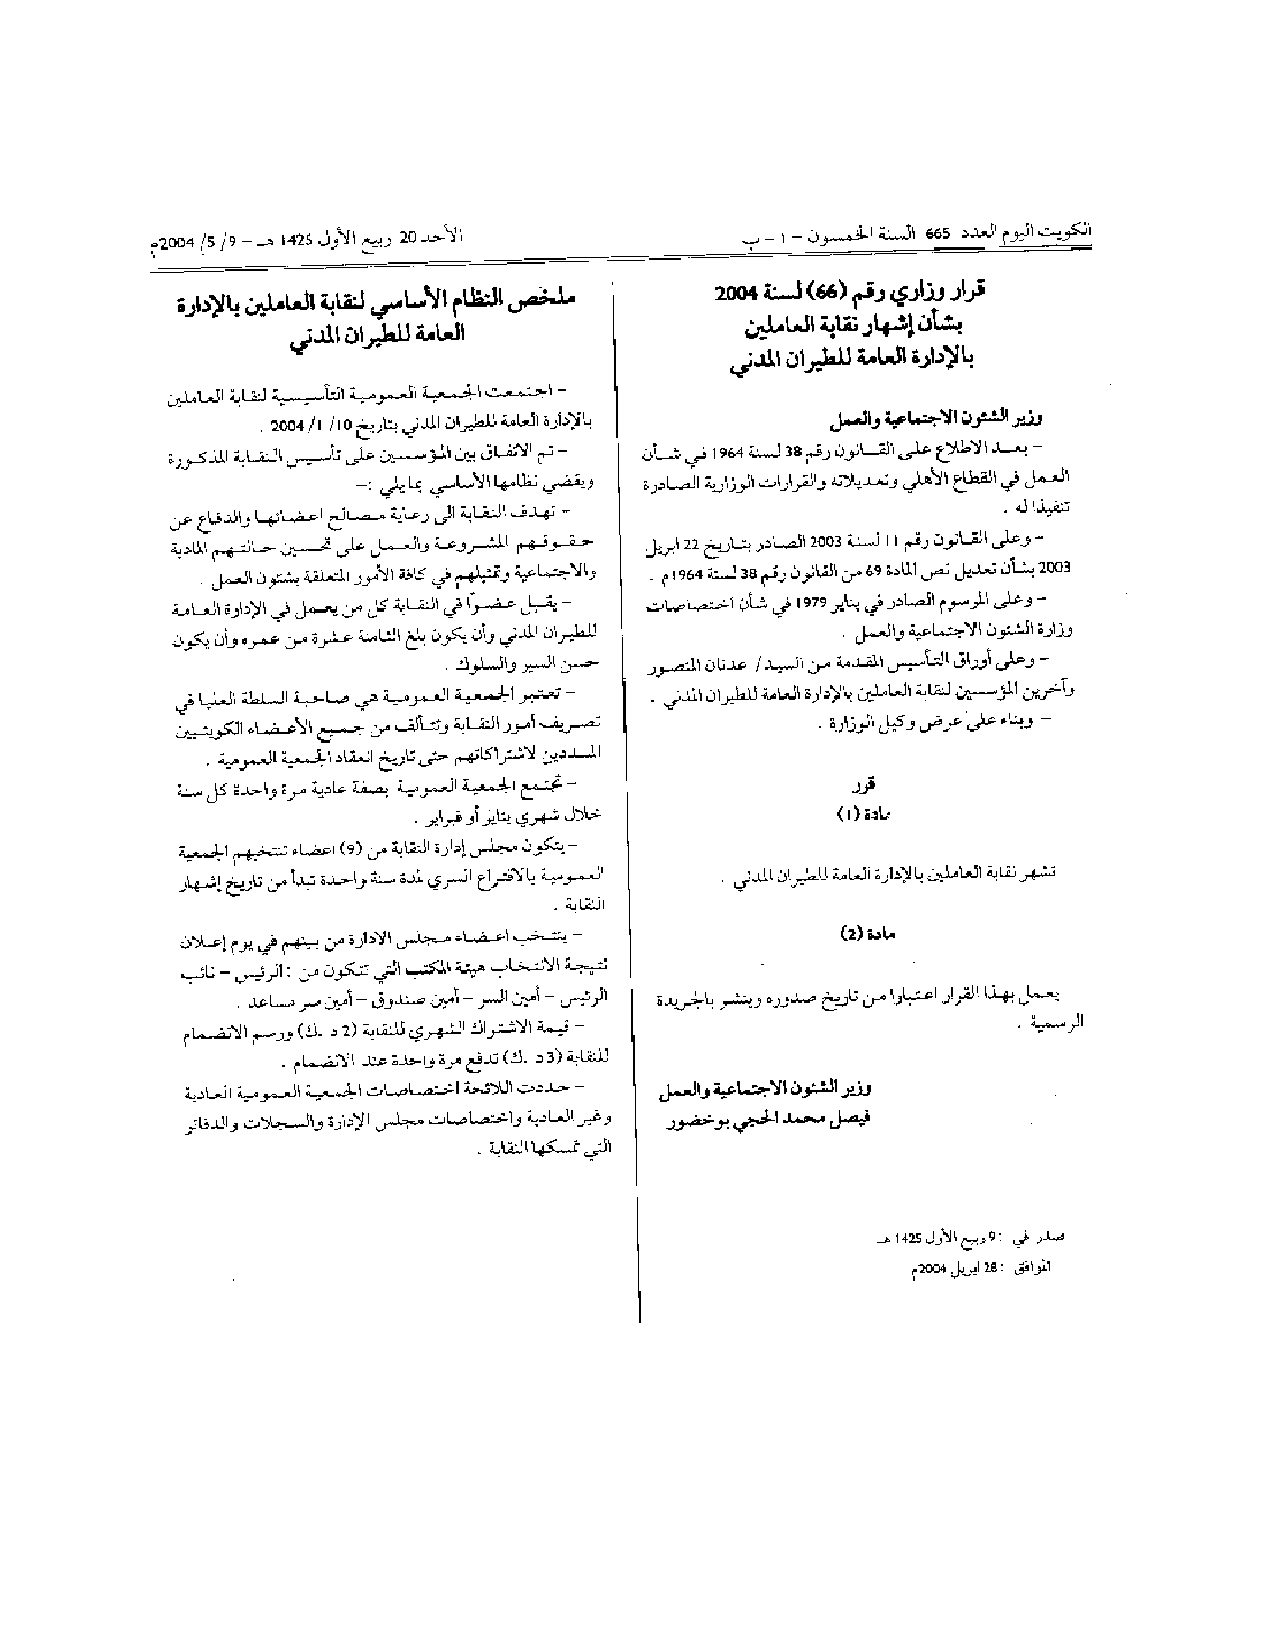 الكويت اليوم العدد 665 السنة الخمسون - ا - ب
الأحد 20 ربيع الأول 1425 هـ - 9/ 5/ 2004م
قرار وزاري رقم (66) لسنة 2004
بشأن إشهار نقابة العاملين
بالإدارة العامة للطيران المدني
وزير الشئون الاجتماعية والعمل
- بعد الاطلاع على القانون رقم 38 لسنة 1964 في شأن
العمل في القطاع الأهلي وتعديلاته والقرارات الوزارية الصادرة
تنفيذا له .
- وعلى القانون رقم 11 لسنة 2003 الصادر بتاريخ 22 ابريل
2003 بشأن تعديل نص المادة 69 من القانون رقم 38 لسنة 1964م .
- وعلى المرسوم الصادر في يناير 1979 في شأن اختصاصات
وزارة الشئون الاجتماعية والعمل .
- وعلى أوراق التأسيس المقدمة من السيد / عدنان المنصور
وآخرين المؤسسين لنقابة العاملين بالإدارة العامة للطيران المدني .
- وبناء على عرض وكيل الوزارة .
قرر
مادة (1)
تشهر نقابة العاملين بالإدارة العامة للطيران المدني .
مادة (2)
يعمل بهذا القرار اعتبارا من تاريخ صدوره وينشر بالجريدة
الرسمية .
وزير الشئون الاجتماعية والعمل
فيصل محمد الحجي بوخضور
صدر في : 9 ربيع الأول 1425 هـ
الموافق : 28 ابريل 2004م
ملخص النظام الأساسي لنقابة العاملين بالإدارة
العامة للطيران المدني
- اجتمعت الجمعية العمومية التأسيسية لنقابة العاملين
بالإدارة العامة للطيران المدني بتاريخ 10/ 1/ 2004 .
- تم الاتفاق بين المؤسسين على تأسيس النقابة المذكورة
ويقضي نظامها الأساسي بمايلي :-
- تهدف النقابة الى رعاية مصالح اعضائها والدفاع عن
حقوقهم المشروعة والعمل على تحسين حالتهم المادية
والاجتماعية وتمثيلهم في كافة الأمور المتعلقة بشئون العمل .
- يقبل عضوًا في النقابة كل من يعمل في الإدارة العامة
للطيران المدني وأن يكون بلغ الثامنة عشرة من عمره وأن يكون
حسن السير والسلوك .
- تعتبر الجمعية العمومية هي صاحبة السلطة العليا في
تصريف أمور النقابة وتتألف من جميع الأعضاء الكويتيين
المسددين لاشتراكاتهم حتى تاريخ انعقاد الجمعية العمومية .
- تجتمع الجمعية العمومية بصفة عادية مرة واحدة كل سنة
خلال شهري يناير أو فبراير .
- يتكون مجلس إدارة النقابة من (9) اعضاء تنتخبهم الجمعية
العمومية بالاقتراع السري لمدة سنة واحدة تبدأ من تاريخ إشهار
النقابة .
- ينتخب اعضاء مجلس الادارة من بينهم في يوم إعلان
نتيجة الانتخاب هيئة المكتب التي تتكون من : الرئيس - نائب
الرئيس - أمين السر - أمين صندوق - أمين سر مساعد .
- قيمة الاشتراك الشهري للنقابة (2 د .ك) ورسم الانضمام
للنقابة (3 د .ك) تدفع مرة واحدة عند الانضمام .
- حددت اللائحة اختصاصات الجمعية العمومية العادية
وغير العادية واختصاصات مجلس الإدارة والسجلات والدفاتر
التي تمسكها النقابة .